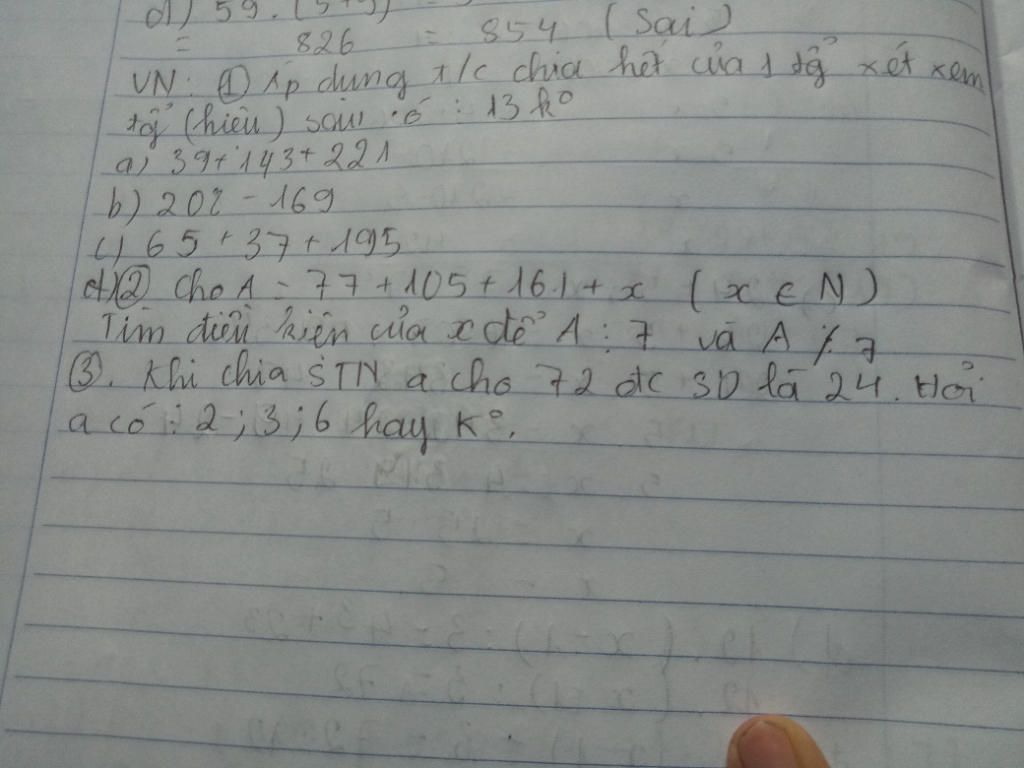 d) 59. (5+9) =
= 826 = 854 (sai)
VN: ① Áp dụng t/c chia hết của 1 tổ̉g xét xem
tổ̉g (hiệu) sau có ⋮ 13 kº
a) 39+143+221
b) 202 - 169
c) 65 + 37 + 195
d) ② Cho A = 77+105+161+x (x ∈ N)
Tìm điều kiện của x để A ⋮ 7 và A ⋮̸ 7
③. Khi chia STN a cho 72 đc SD là 24. Hỏi
a có ⋮ 2; 3; 6 hay Kº.